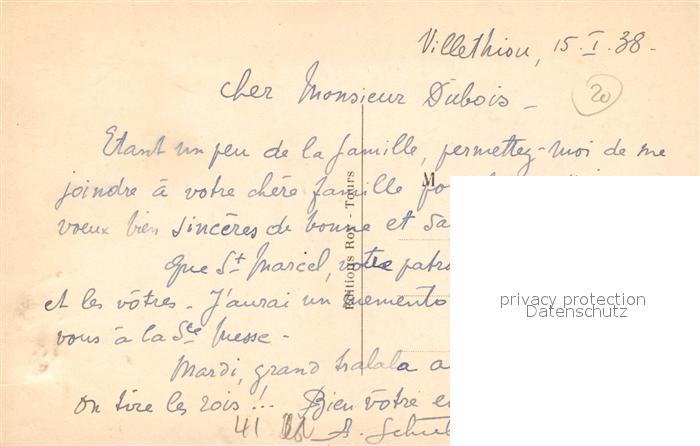 Villethiou, 15.I.38-
20
Cher Monsieur Dubois -
Etant un peu de la famille, permettez-moi de me
joindre à votre chère famille
M
voeux bien sincères de bonne et
Que St Marcel, votre
et les vôtres - J'aurai un memento
vous à la Ste Messe -
Mardi, grand tralala
on tire les rois!! Bien vôtre
41
Editions Roy - Tours
privacy protection
Datenschutz